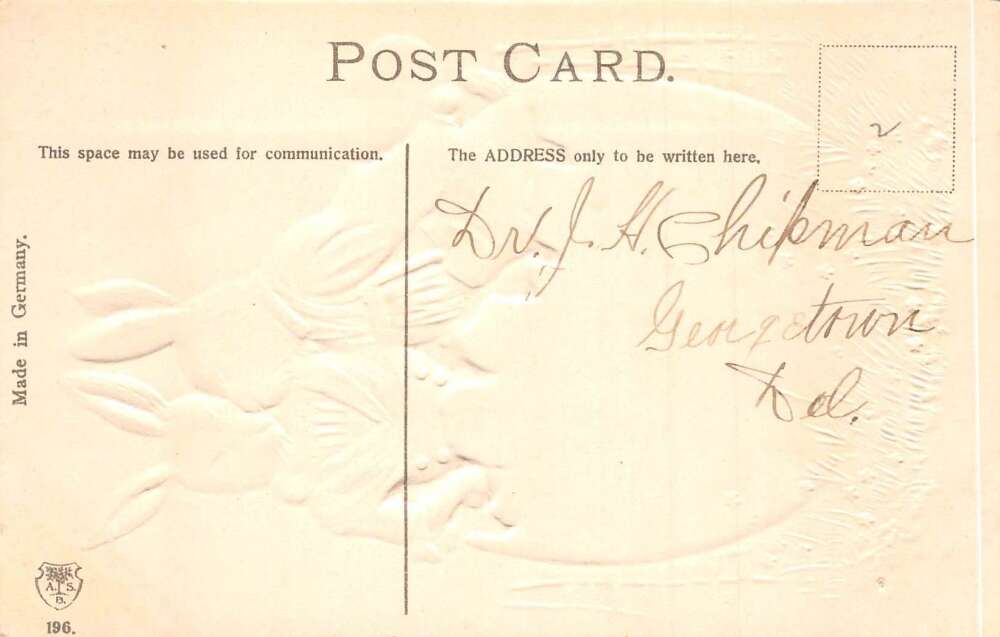 POST CARD.
2
This space may be used for communication.
The ADDRESS only to be written here.
Dr. J. H. Chipman
Georgetown
Del.
Made in Germany.
A. S.
B.
196.